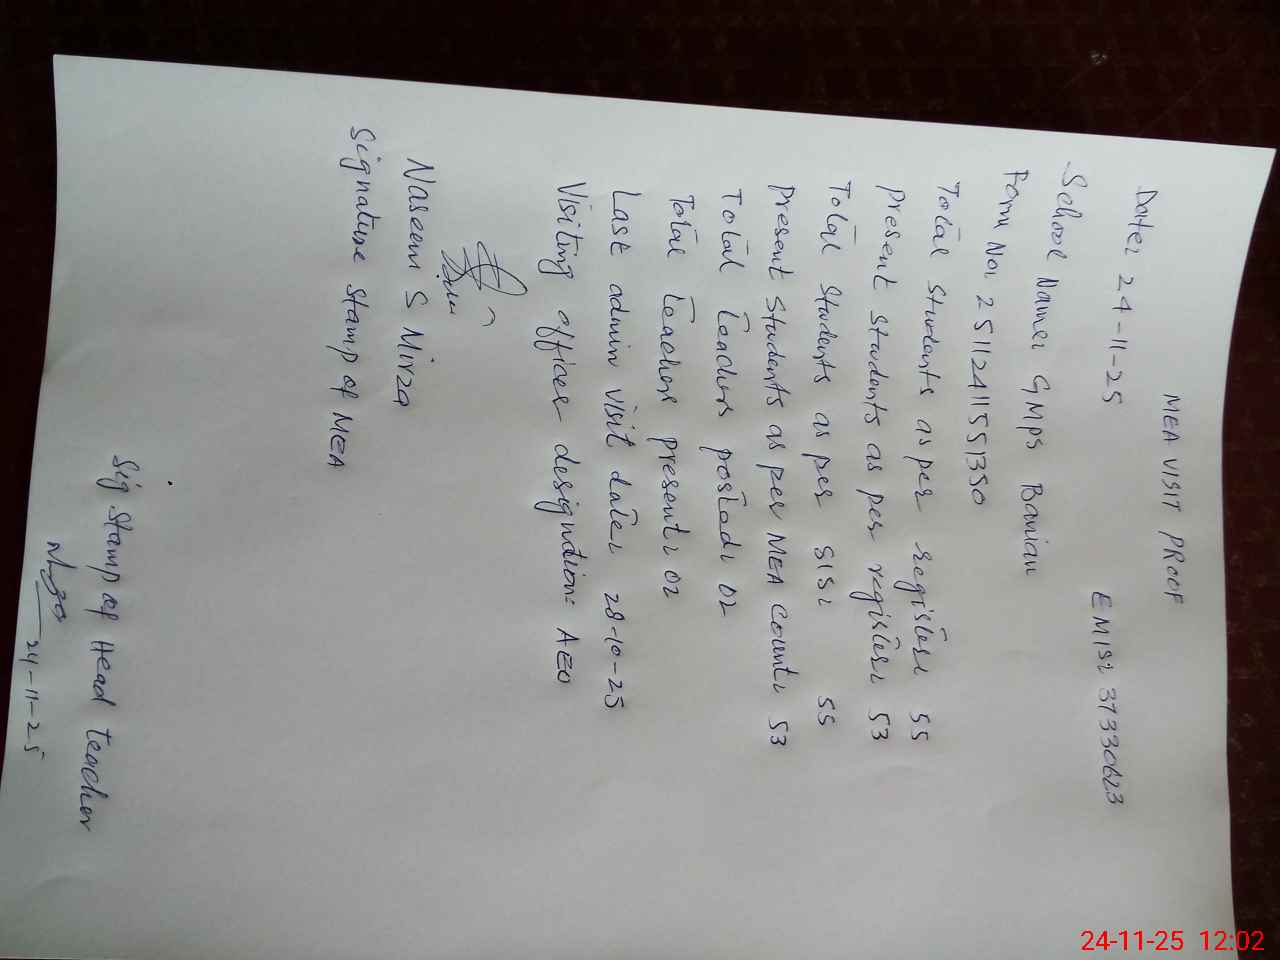 MEA VISIT PROOF
Date: 24-11-25
EMIS: 37330623
School Name: GMPS Banian
Form No: 251124115551350
Total students as per register: 55
Present students as per register: 53
Total students as per SIS: 55
Present students as per MEA count: 53
Total teachers posted: 02
Total teachers present: 02
Last admin visit date: 28-10-25
Visiting officer designation: AEO
Naseem S Mirza
Signature Stamp of MEA
Sig Stamp of Head teacher
24-11-25
24-11-25 12:02